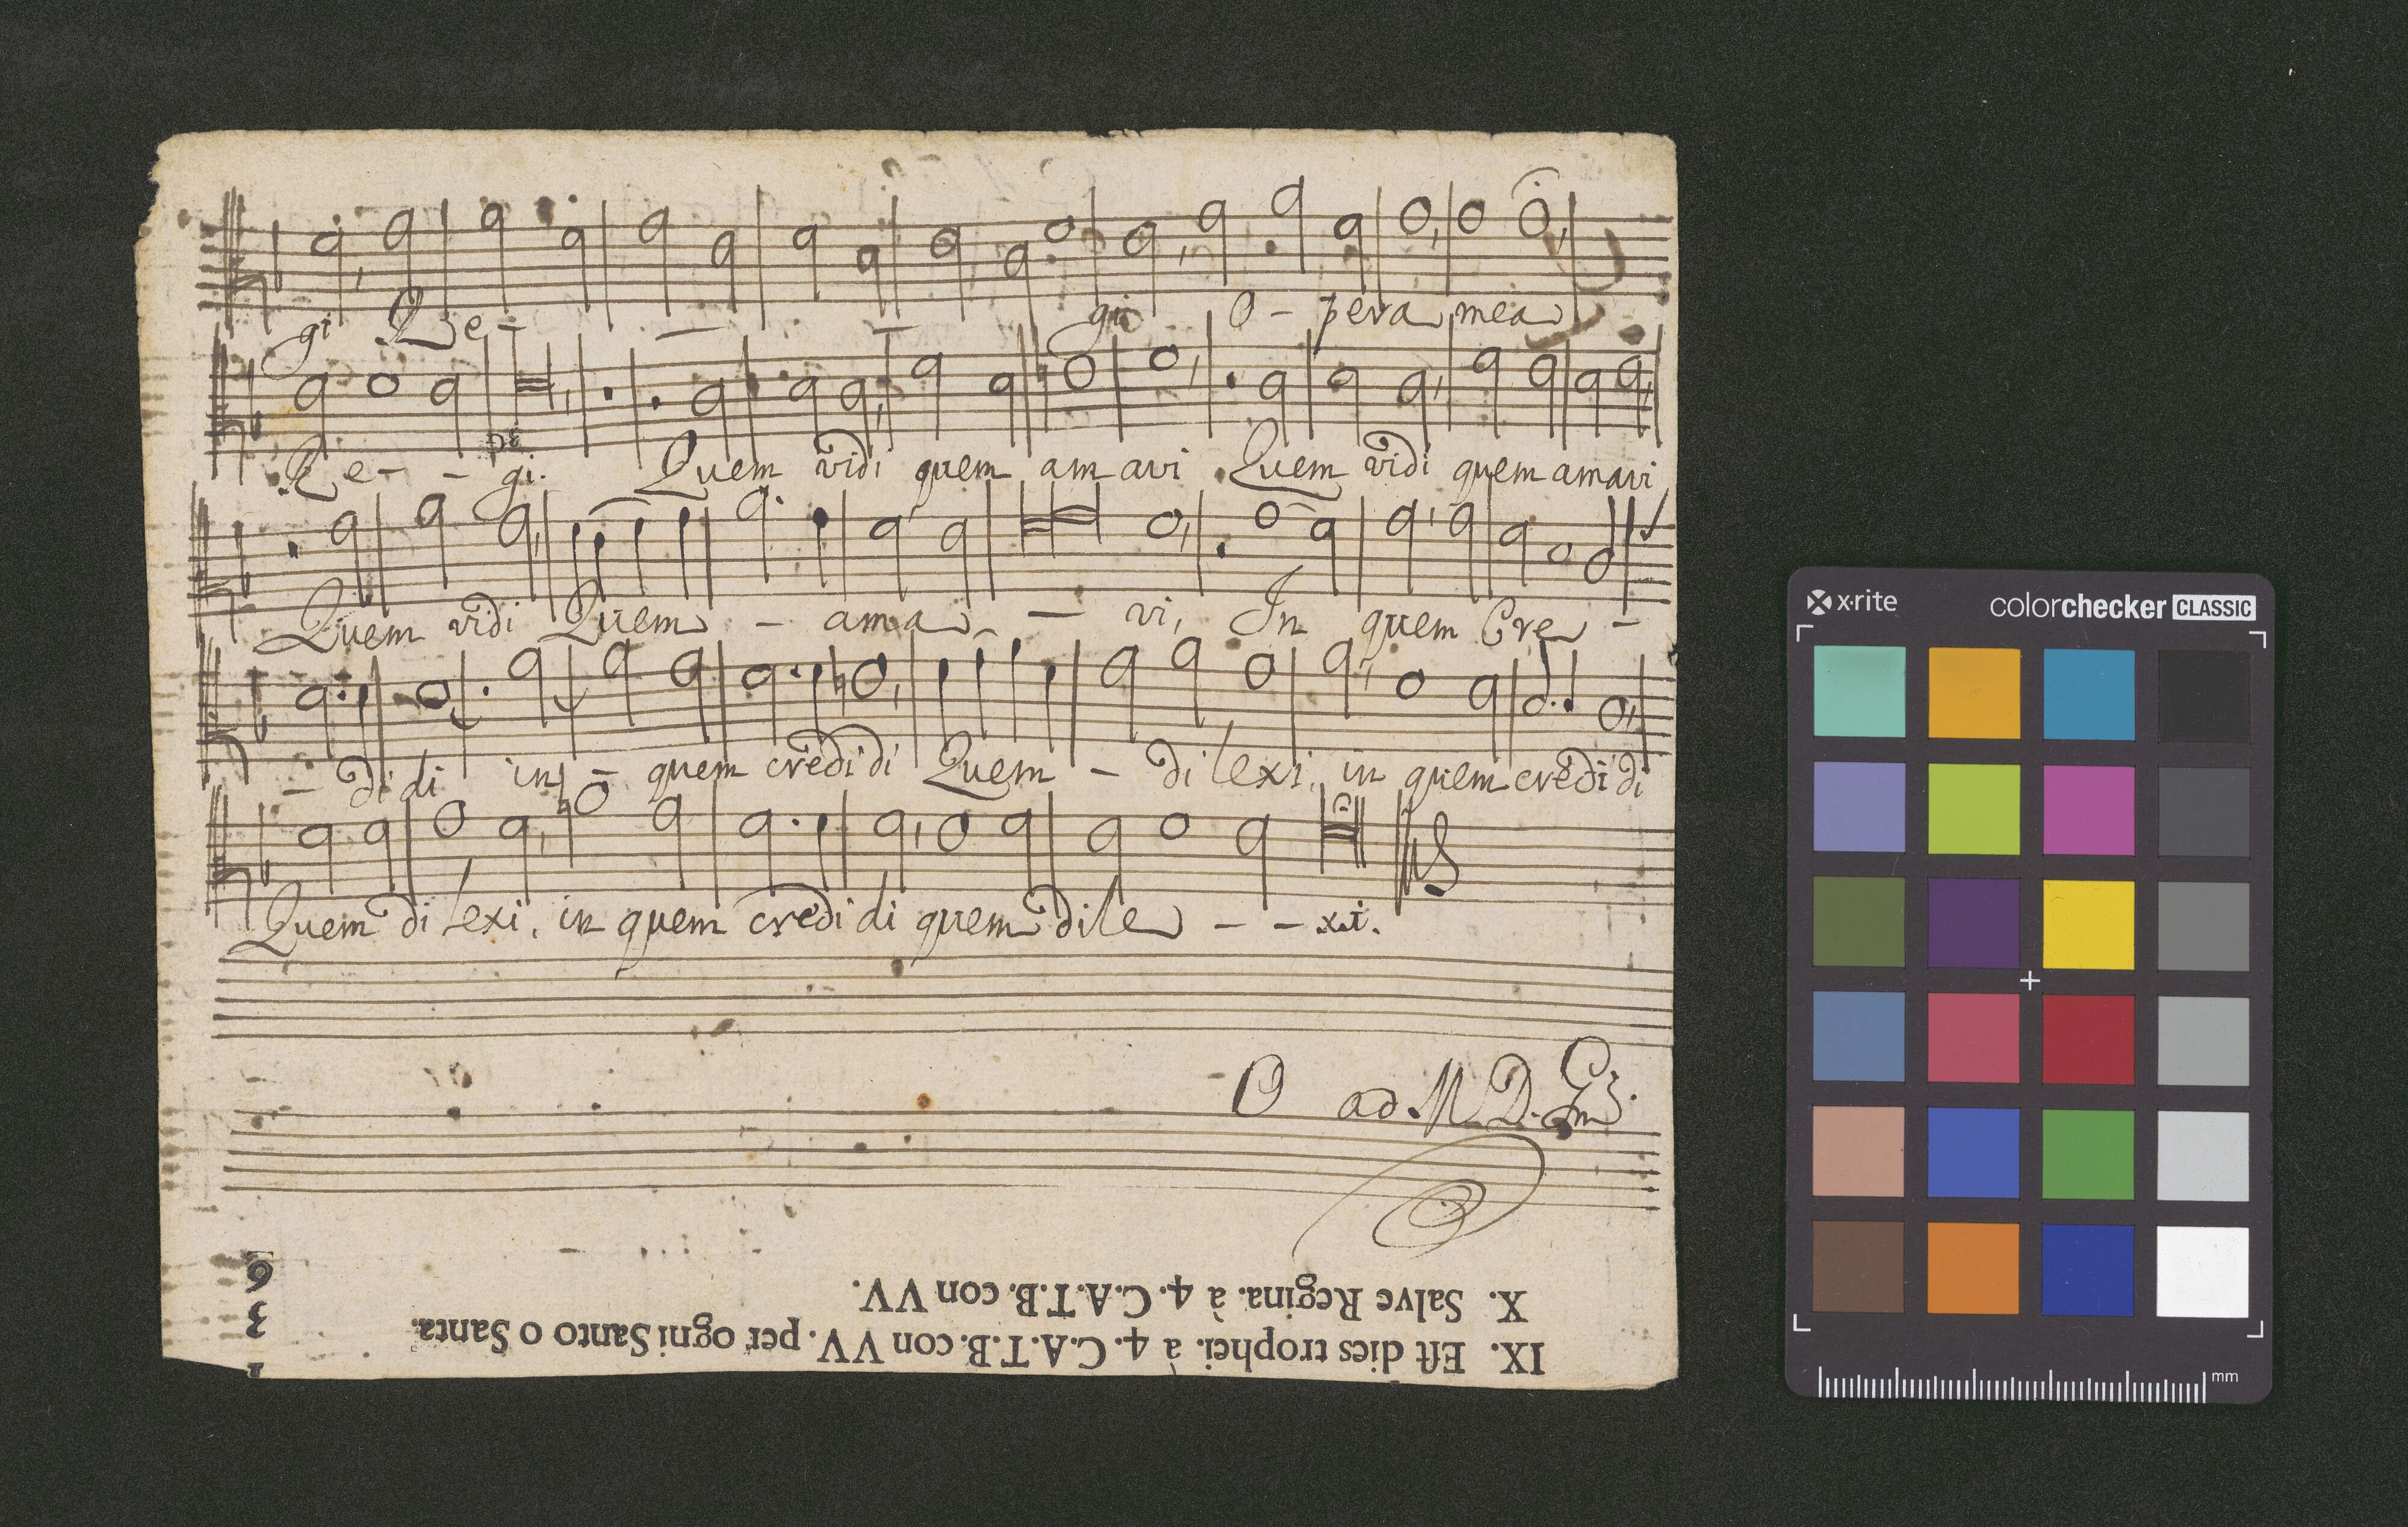 gi Re - - - gi O - pera mea
Re - - gi. Quem vidi quem amavi Quem vidi quem amavi
Quem vidi Quem - ama - vi, In quem Cre -
- didi in - quem credidi Quem - dilexi, in quem credidi
Quem dilexi, in quem credidi quem dile - - xi.
O ad M D. G
IX. Eſt dies trophei. à 4. C.A.T.B. con VV. per ogni Santo o Santa.
X. Salve Regina. à 4. C.A.T.B. con VV.
x·rite colorchecker CLASSIC
mm